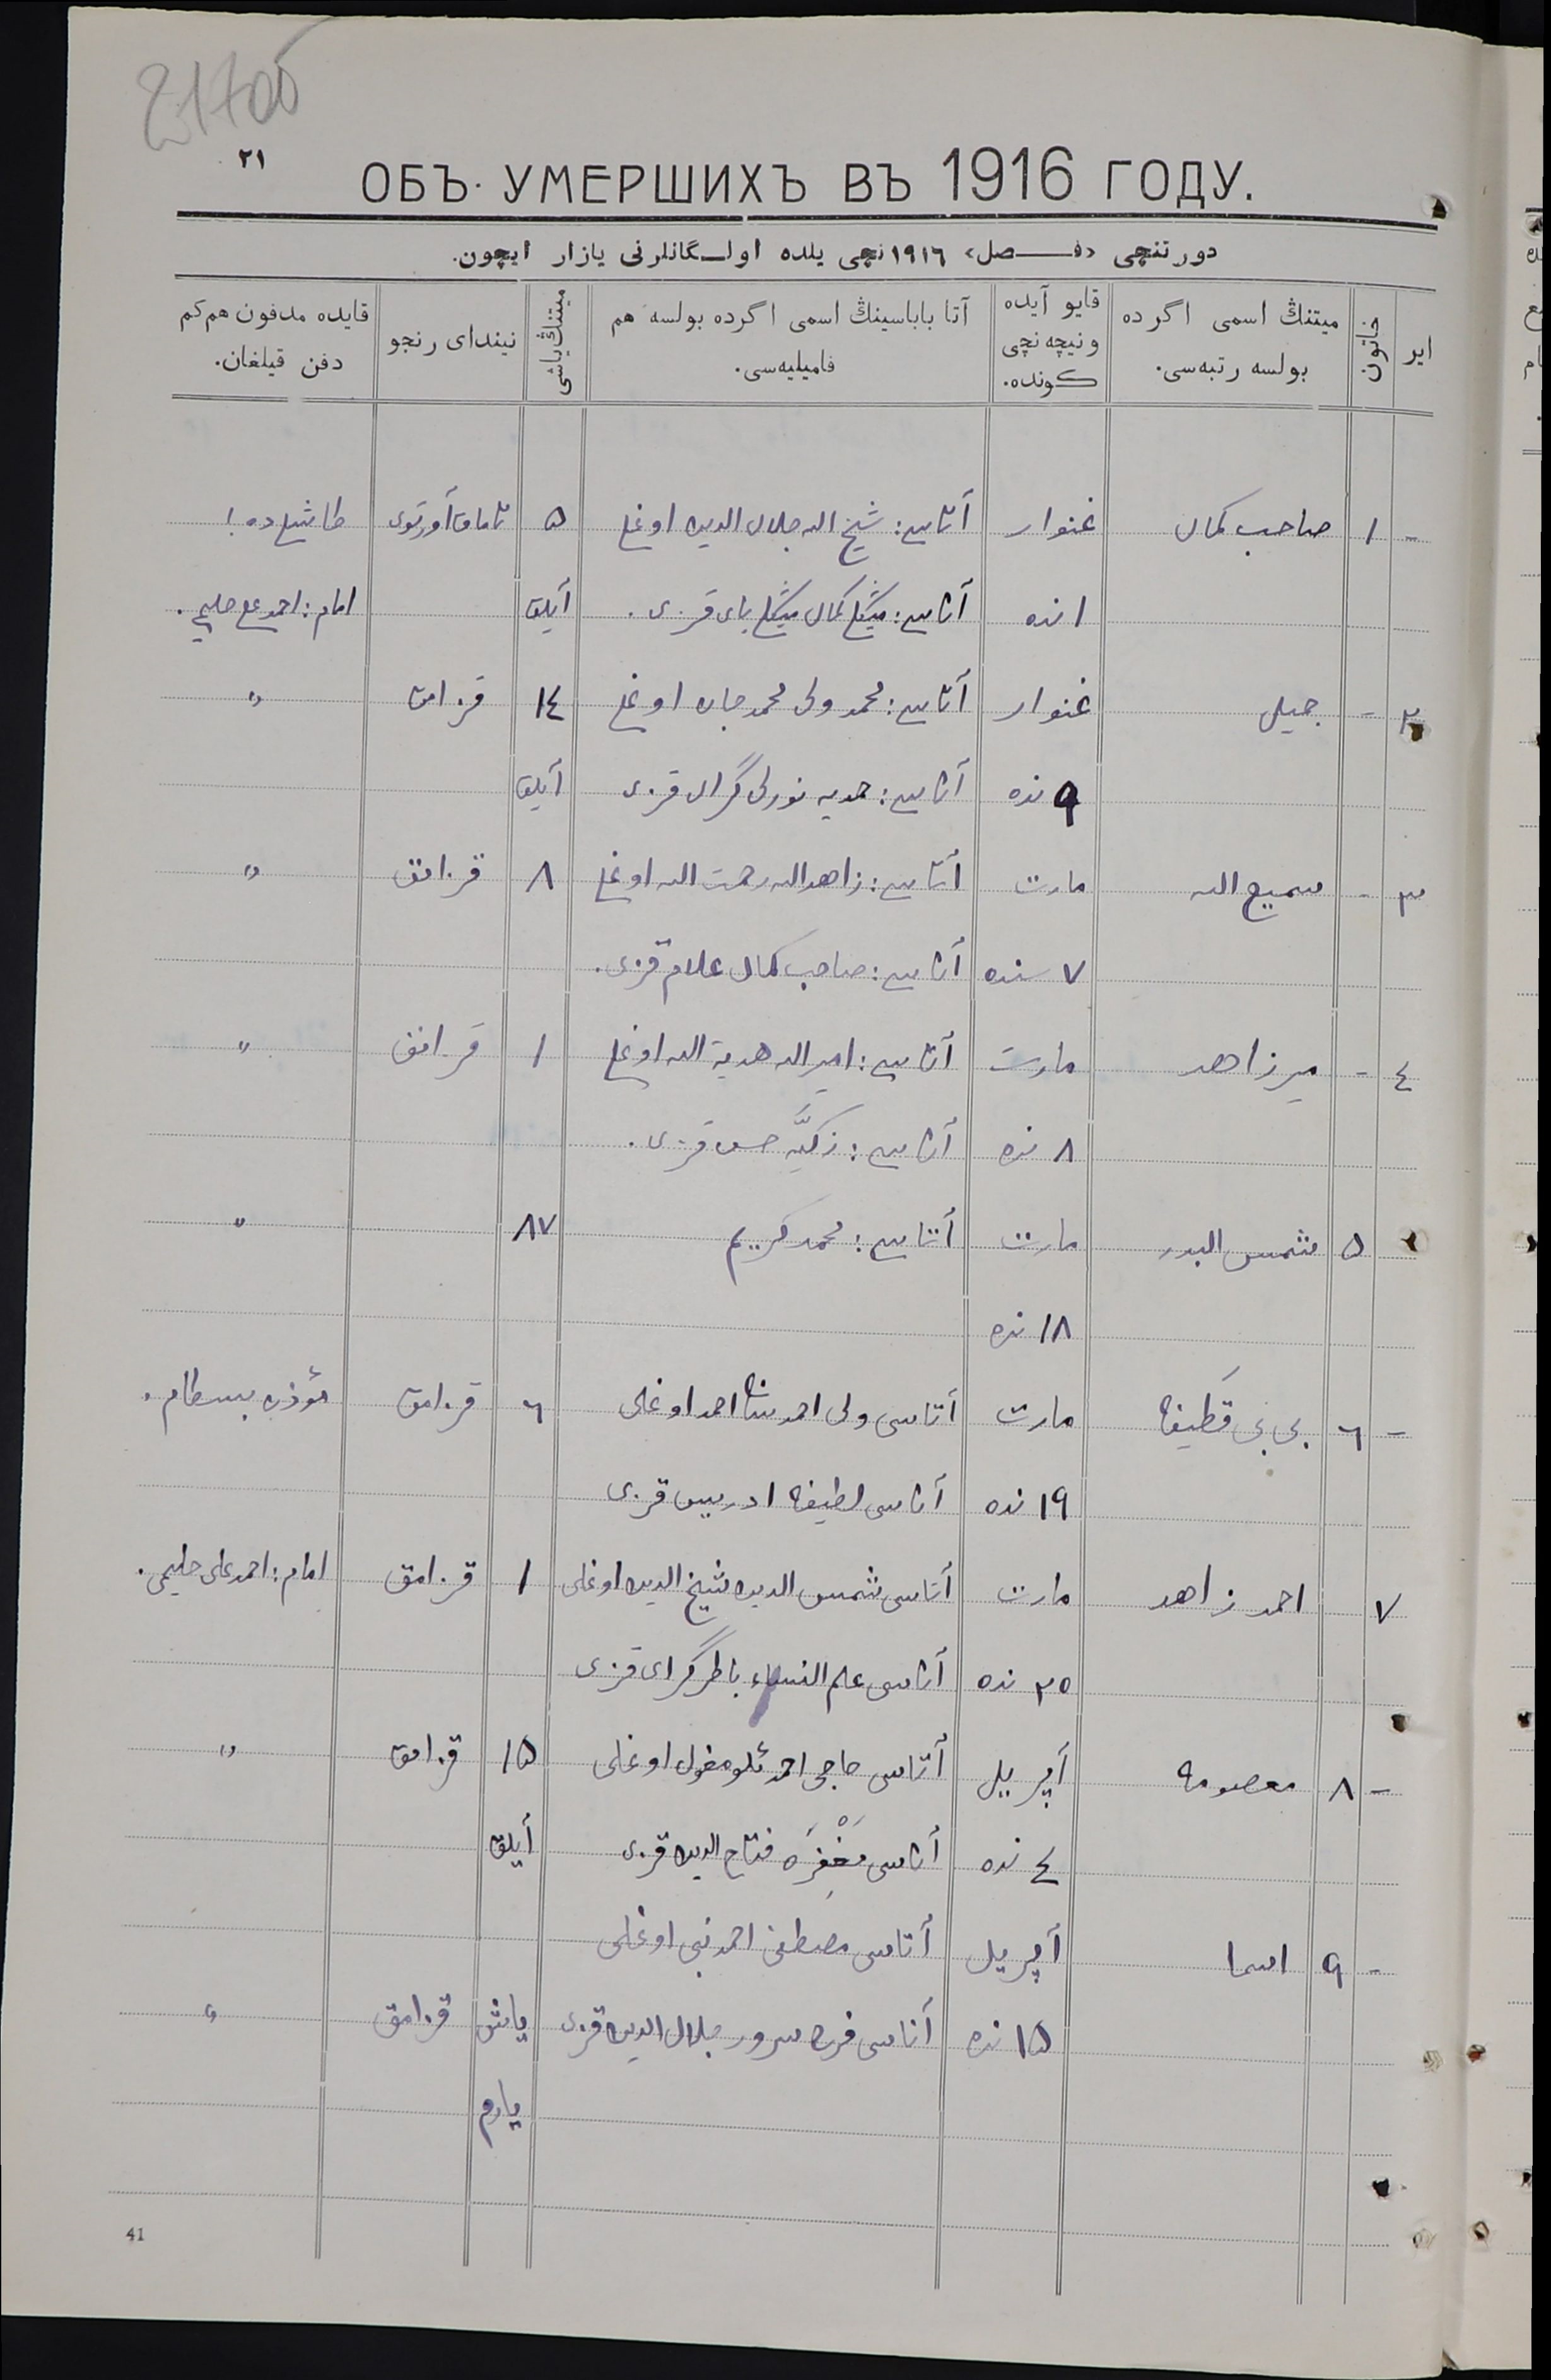 21700
٢١
ОБЪ УМЕРШИХЪ ВЪ 1916 ГОДУ.
دورتنچی ‹فـــصل› ١٩١٦ نچی یلده اولـگانلرنی یازار ایچون.
ایر خاتون میتنڭ اسمی اگرده بولسه رتبه‌سی. قایو آیده ونیچه نچی کونده. آتا باباسینڭ اسمی اگرده بولسه هم فامیلیه‌سی. میتنڭ یاشی نیندای رنجو قایده مدفون هم کم دفن قیلغان.
- ١ صاحب کمال غنوار آتاسی: شیخ الله جلال الدین اوغلی ۵ تاماق آورتوی
١ نده آناسی: کمال قزی. آیلق امام: احمد علی حلیمی.
٢ - جمیل غنوار آتاسی: محمد ولی محمد جان اوغلی ١٤ قزامق "
٩ نده آناسی: نورلی گرای قزی آیلق
٣ - سمیع الله مارت آتاسی: زاهد الله رحمت الله اوغلی ٨ قزامق "
٧ سنده آناسی: صاحب کمال علام قزی.
٤ - میرزاهد مارت آتاسی: امیر الله هدیة الله اوغلی ١ قزامق "
٨ نده آناسی: زکیّه حسن قزی.
۵ شمس البدر مارت آتاسی: محمد کریم ٨٧ "
١٨ نده
- ٦ بی بی قَطیفه مارت آتاسی ولی احمد احمد اوغلی ٦ قزامق مؤذن بسطام.
١٩ نده آناسی لطیفه ادریس قزی
٧ احمد زاهد مارت آتاسی شمس الدین شیخ الدین اوغلی ١ قزامق امام: احمد علی حلیمی.
٢۵ نده آناسی علم النساء باطرگرای قزی
- ٨ معصومه آپریل آتاسی حاجی احمد اوغلی ١۵ قزامق "
٤ نده آناسی مَغْفِرَه فتاح الدین قزی آیلق
- ٩ اسما آپریل آتاسی مصطفی احمد نبی اوغلی
١۵ نده آناسی سرور جلال الدین قزی یاش قزامق "
یارم
41